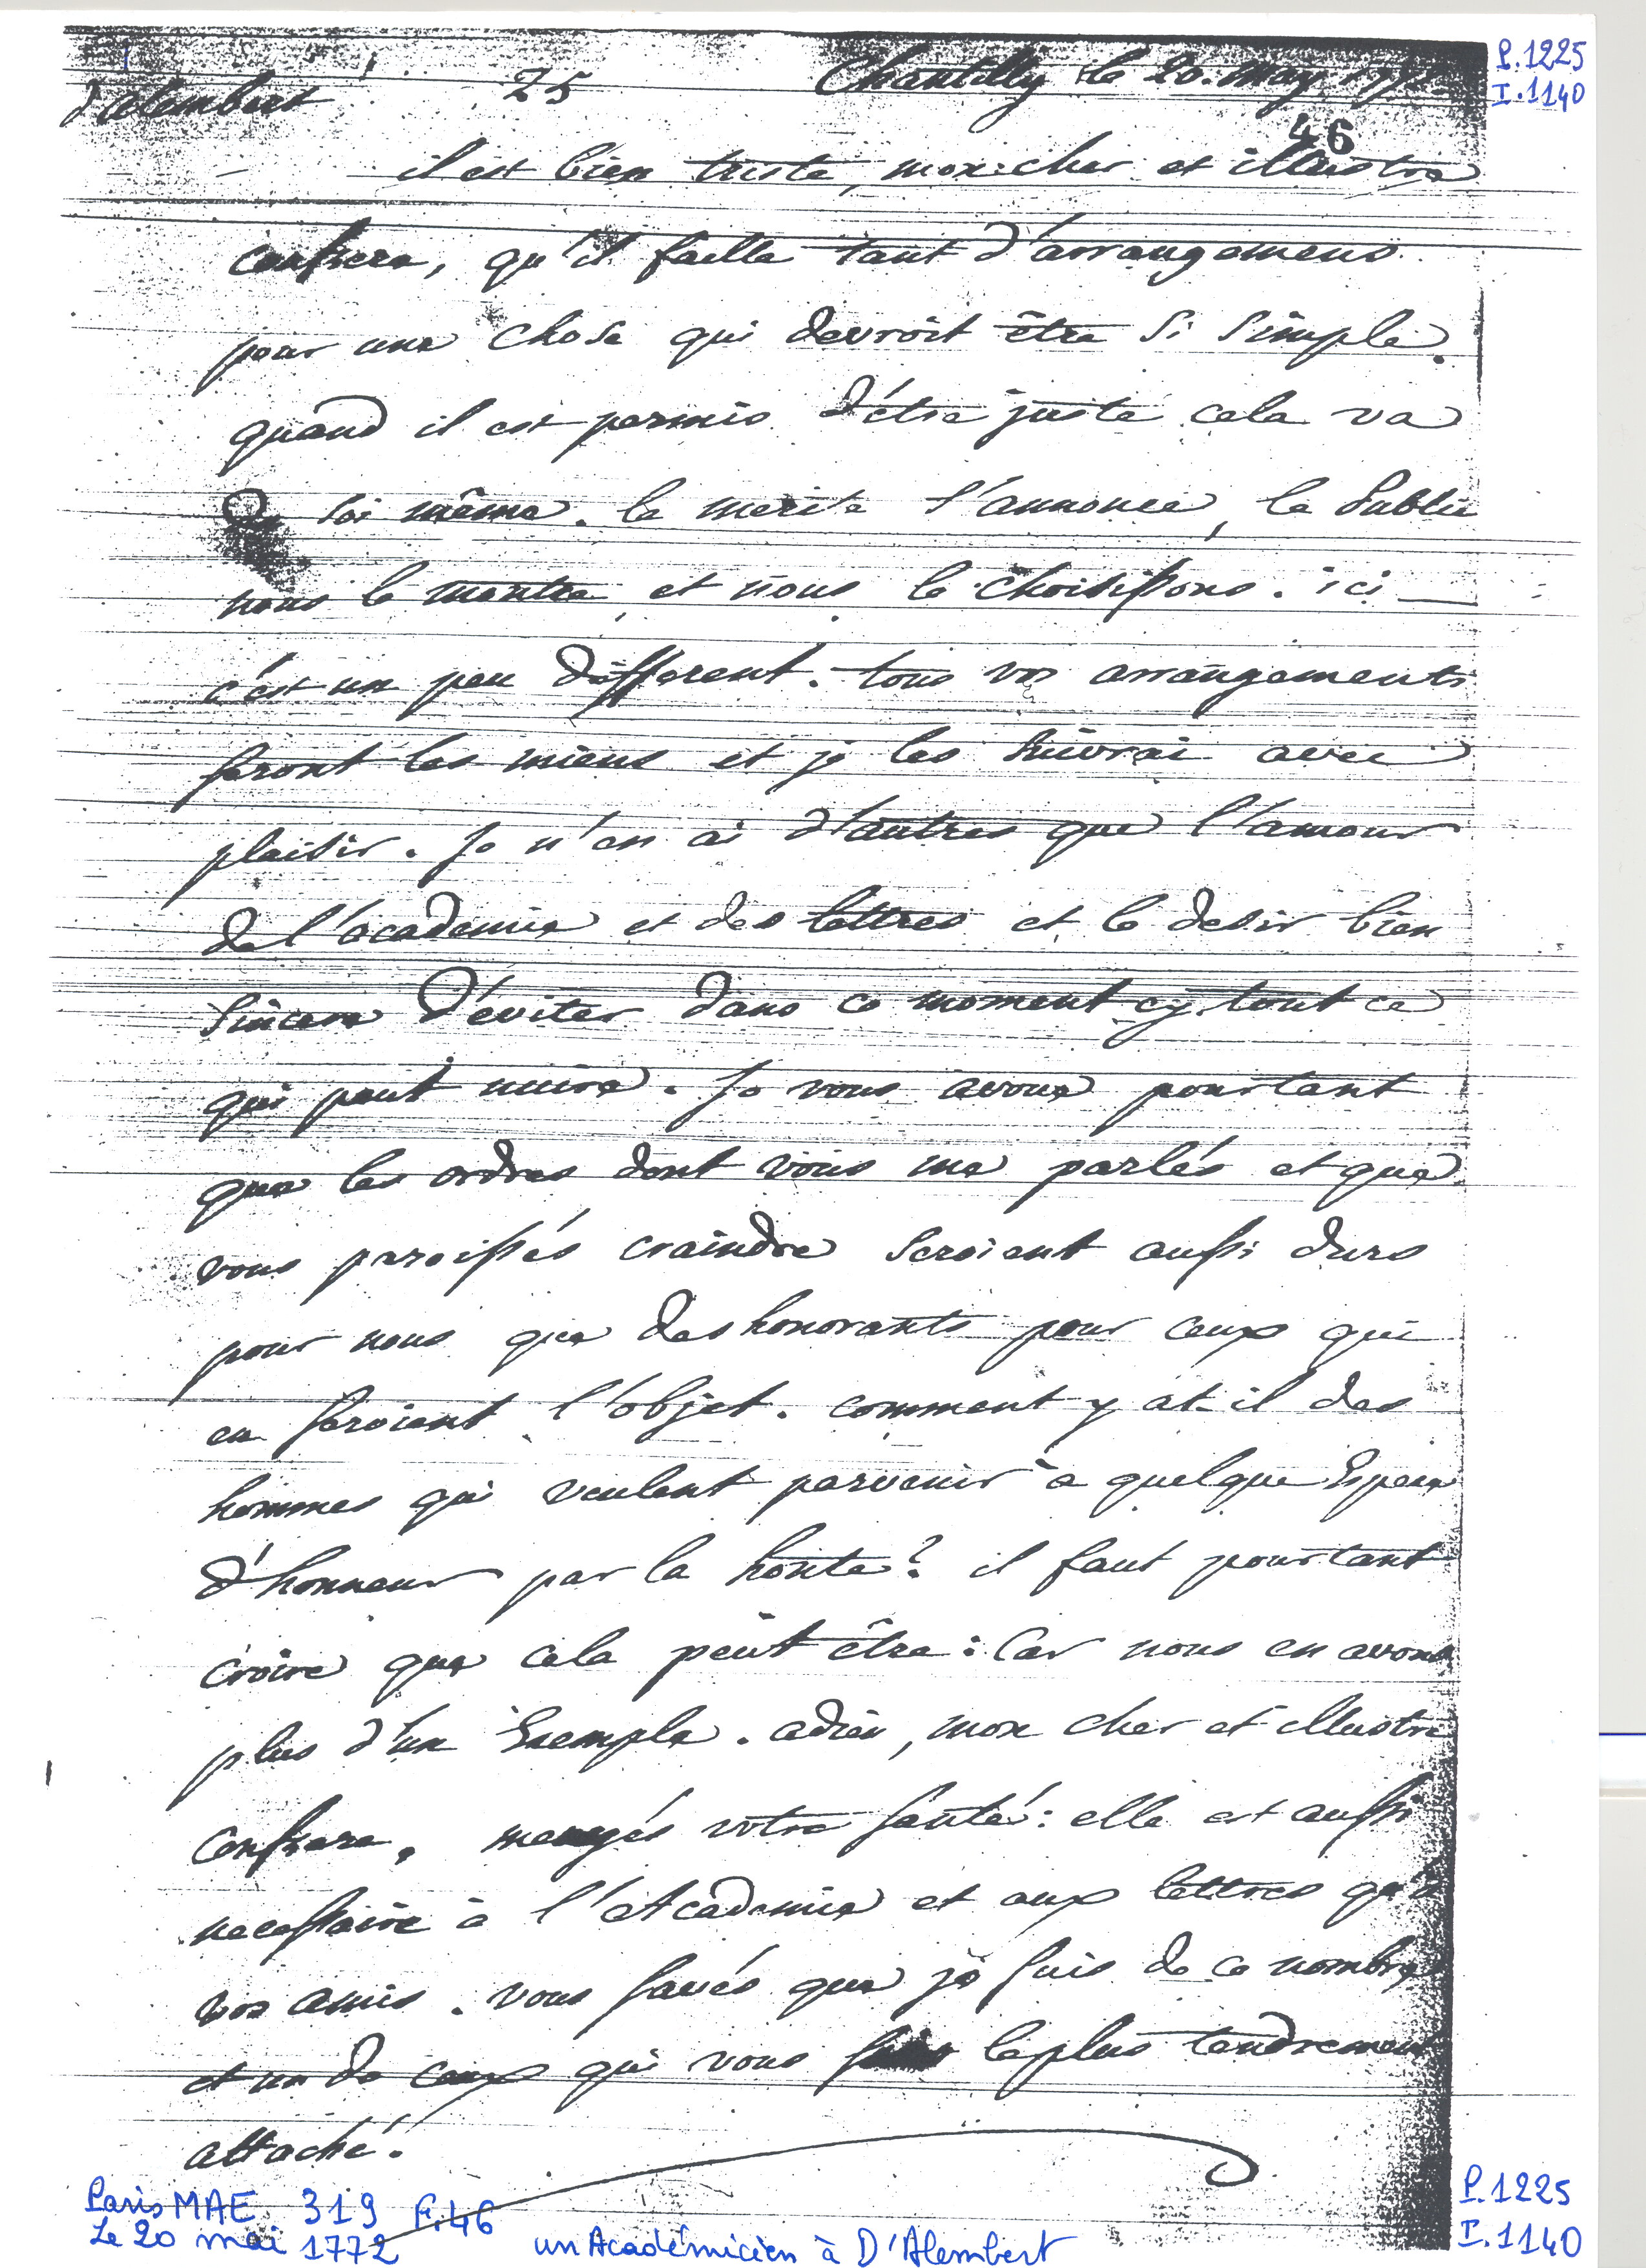 P.1225
I.1140
d'alembert 25 Chantilly le 20. may
46
il est bien triste, mon cher et illustre
confrere, qu'il faille tant d'arrangemens
pour une chose qui devroit être si simple.
quand il est permis d'être juste cela va
De soi même. le merite s'annonce, le Public
nous le montre et nous le choisissons. ici
c'est un peu différent. tous vos arrangements
seront les miens et je les suivrai avec
plaisir. Je n'en ai d'autres que l'amour
de l'academie et des lettres et le desir bien
sincere d'éviter dans ce moment cy tout ce
qui peut nuire. Je vous avoue pourtant
que les ordres dont vous me parlés et que
vous paroissés craindre seroient aussi durs
pour nous que deshonorants pour ceux qui
en seroient l'objet. comment y at-il des
hommes qui veulent parvenir à quelque Espece
d'honneur par la honte? il faut pourtant
croire que cela peut être: Car nous en avons
plus d'un Exemple. adieu, mon cher et illustre
Confrere, menagés votre santé: elle est aussi
necessaire à l'Academie et aux lettres qu'à
vos amis. vous savés que je suis de ce nombre
et un de ceux qui vous le plus tendrement
attaché.
Paris MAE 319 F.46
Le 20 mai 1772
un Académicien à D'Alembert
P.1225
I.1140